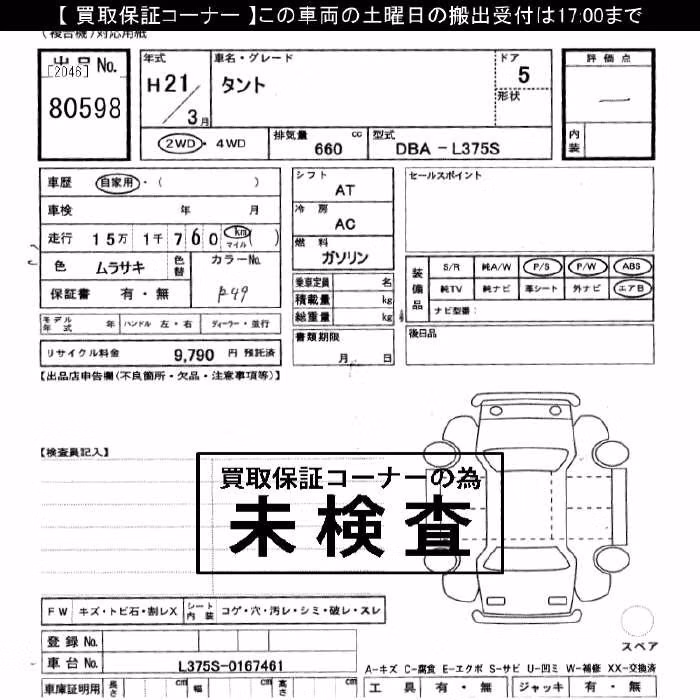 【 買取保証コーナー 】この車両の土曜日の搬出受付は17:00まで
(複合機)対応用紙
出品No.
[2046]
80598
年式
H21
3月
車名・グレード
タント
ドア
5
形状
評価点
—
内装
2WD・4WD
排気量 cc
660
型式
DBA-L375S
車歴 自家用・( )
車検 年 月
走行 15万 1千 760 km マイル ( )
色 ムラサキ 色替 カラーNo.
保証書 有・無 P49
モデル年式 年 ハンドル 左・右 ディーラー・並行
リサイクル料金 9,790 円 預託済
シフト
AT
冷房
AC
燃料
ガソリン
乗車定員 名
積載量 kg
総重量 kg
書類期限
月 日
セールスポイント
装備品
S/R 純A/W P/S P/W ABS
純TV 純ナビ 革シート 外ナビ エアB
ナビ型番:
後日品
【出品店申告欄(不良箇所・欠品・注意事項等)】
【検査員記入】
買取保証コーナーの為
未検査
FW キズ・トビ石・割レX シート内装 コゲ・穴・汚レ・シミ・破レ・スレ
スペア
登録No.
車台No. L375S-0167461
A-キズ C-腐食 E-エクボ S-サビ U-凹ミ W-補修 XX-交換済
車庫証明用 長さ cm 幅 cm 高さ cm
工具 有・無 ジャッキ 有・無